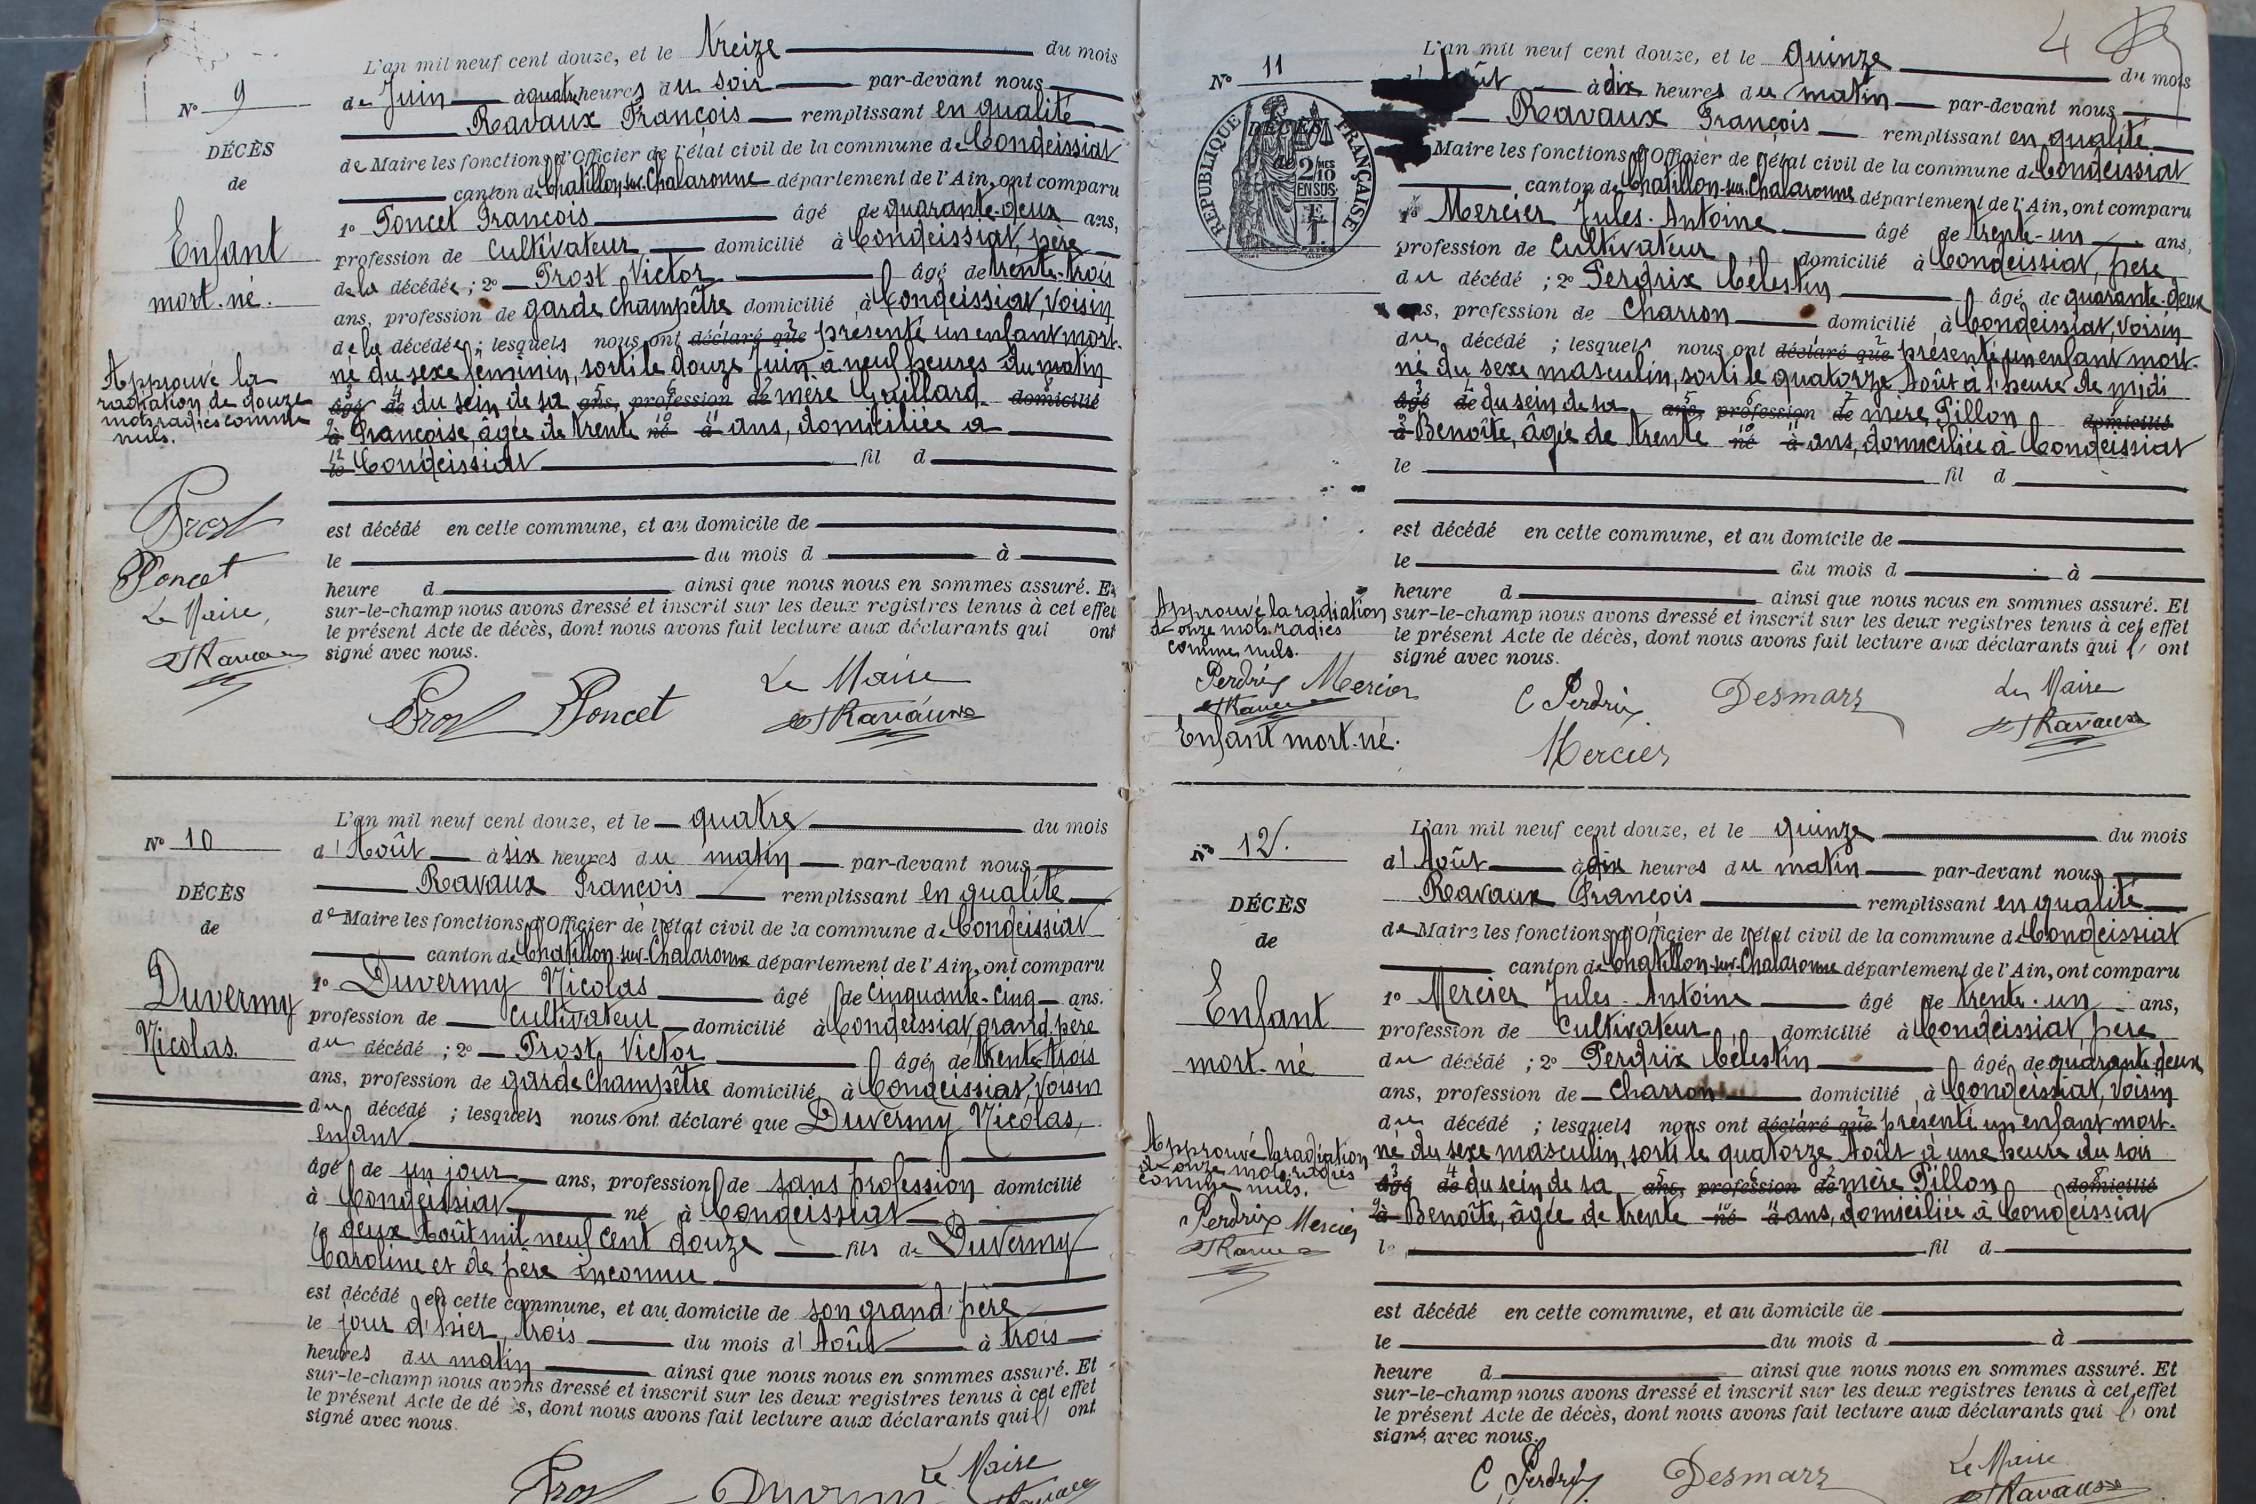 L'an mil neuf cent douze, et le treize du mois
de Juin à quatre heures du soir par-devant nous
Ravaux François remplissant en qualité
de Maire les fonctions d'Officier de l'état civil de la commune de Condeissiat
canton de Chatillon-sur-Chalaronne département de l'Ain, ont comparu
1º Poncet François âgé de quarante-deux ans,
profession de cultivateur domicilié à Condeissiat, père
de la décédée ; 2º Prost Victor âgé de trente-trois
ans, profession de garde champêtre domicilié à Condeissiat, voisin
de la décédée ; lesquels nous ont déclaré que présenté un enfant mort-
né du sexe féminin, sorti le douze Juin à neuf heures du matin
âgé de du sein de sa ans, profession de mère Guillard domicilié
à Françoise, âgée de trente né à ans, domiciliée à
le Condeissiat fil d
est décédé en cette commune, et au domicile de
le du mois d à
heure d ainsi que nous nous en sommes assuré. Et
sur-le-champ nous avons dressé et inscrit sur les deux registres tenus à cet effet
le présent Acte de décès, dont nous avons fait lecture aux déclarants qui ont
signé avec nous.
Prost Poncet Le Maire
Ravaux
Nº 9
DÉCÈS
de
Enfant
mort-né.
Approuvé la
radiation de douze
mots radiés comme
nuls.
Prost
Poncet
Le Maire,
Ravaux
Nº 10
DÉCÈS
de
Duvermy
Nicolas.
L'an mil neuf cent douze, et le quatre du mois
d'Août à six heures du matin par-devant nous
Ravaux François remplissant en qualité
de Maire les fonctions d'Officier de l'état civil de la commune de Condeissiat
canton de Chatillon-sur-Chalaronne département de l'Ain, ont comparu
1º Duvermy Nicolas âgé de cinquante-cinq ans.
profession de cultivateur domicilié à Condeissiat, grand-père
du décédé ; 2º Prost Victor âgé de trente-trois
ans, profession de garde champêtre domicilié à Condeissiat, voisin
du décédé ; lesquels nous ont déclaré que Duvermy Nicolas,
enfant
âgé de un jour ans, profession de sans profession domicilié
à Condeissiat né à Condeissiat
le deux Août mil neuf cent douze fils de Duvermy
Caroline et de père inconnu
est décédé en cette commune, et au domicile de son grand-père
le jour d'hier, trois du mois d'Août à trois
heures du matin ainsi que nous nous en sommes assuré. Et
sur-le-champ nous avons dressé et inscrit sur les deux registres tenus à cet effet
le présent Acte de décès, dont nous avons fait lecture aux déclarants qui ont
signé avec nous.
Le Maire
4
Nº 11
RÉPUBLIQUE FRANÇAISE
DÉCÈS
de
2/10 MES
EN SUS
L'an mil neuf cent douze, et le quinze du mois
d'Août à dix heures du matin par-devant nous
Ravaux François remplissant en qualité
Maire les fonctions d'Officier de l'état civil de la commune de Condeissiat
canton de Chatillon-sur-Chalaronne département de l'Ain, ont comparu
1º Mercier Jules-Antoine âgé de trente-un ans,
profession de cultivateur, domicilié à Condeissiat, père
du décédé ; 2º Perdrix Célestin âgé de quarante-deux
ans, profession de charron domicilié à Condeissiat, voisin
du décédé ; lesquels nous ont déclaré que présenté un enfant mort-
né du sexe masculin, sorti le quatorze Août à l'heure de midi
âgé de du sein de sa ans, profession de mère Pillon domicilié
à Benoîte, âgée de trente né à ans, domiciliée à Condeissiat
le fil d
est décédé en cette commune, et au domicile de
le du mois d à
heure d ainsi que nous nous en sommes assuré. Et
sur-le-champ nous avons dressé et inscrit sur les deux registres tenus à cet effet
le présent Acte de décès, dont nous avons fait lecture aux déclarants qui ont
signé avec nous.
Approuvé la radiation
de onze mots radiés
comme nuls.
Perdrix Mercier
Ravaux
Enfant mort-né.
C Perdrix Desmarz Le Maire
Mercier Ravaux
Nº 12
DÉCÈS
de
Enfant
mort-né
Approuvé la radiation
de onze mots radiés
comme nuls.
Perdrix Mercier
Ravaux
L'an mil neuf cent douze, et le quinze du mois
d'Août à dix heures du matin par-devant nous
Ravaux François remplissant en qualité
de Maire les fonctions d'Officier de l'état civil de la commune de Condeissiat
canton de Chatillon-sur-Chalaronne département de l'Ain, ont comparu
1º Mercier Jules-Antoine âgé de trente-un ans,
profession de cultivateur, domicilié à Condeissiat, père
du décédé ; 2º Perdrix Célestin âgé de quarante-deux
ans, profession de charron domicilié à Condeissiat, voisin
du décédé ; lesquels nous ont déclaré que présenté un enfant mort-
né du sexe masculin, sorti le quatorze Août à une heure du soir
âgé de du sein de sa ans, profession de mère Pillon domicilié
à Benoîte, âgée de trente né à ans, domiciliée à Condeissiat
le fil d
est décédé en cette commune, et au domicile de
le du mois d à
heure d ainsi que nous nous en sommes assuré. Et
sur-le-champ nous avons dressé et inscrit sur les deux registres tenus à cet effet
le présent Acte de décès, dont nous avons fait lecture aux déclarants qui ont
signé avec nous.
C Perdrix Desmarz Le Maire
Ravaux